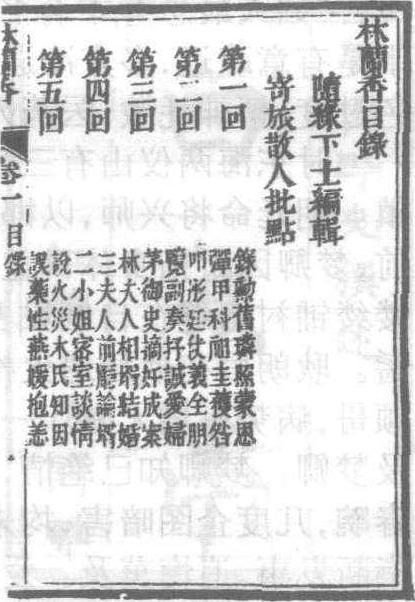 林蘭香目錄
隨緣下士編輯
寄旅散人批點
第一回
錄勳舊璘照蒙恩
彈甲科祖圭獲咎
第二回
叩彤廷仗義全朋
覽副奏抒誠愛婦
第三回
茅御史摘奸成案
林夫人相壻結婚
第四回
三夫人前廳論壻
二小姐密室談情
第五回
說火災木氏知因
誤藥性燕媛抱恙
林蘭香 卷一目錄